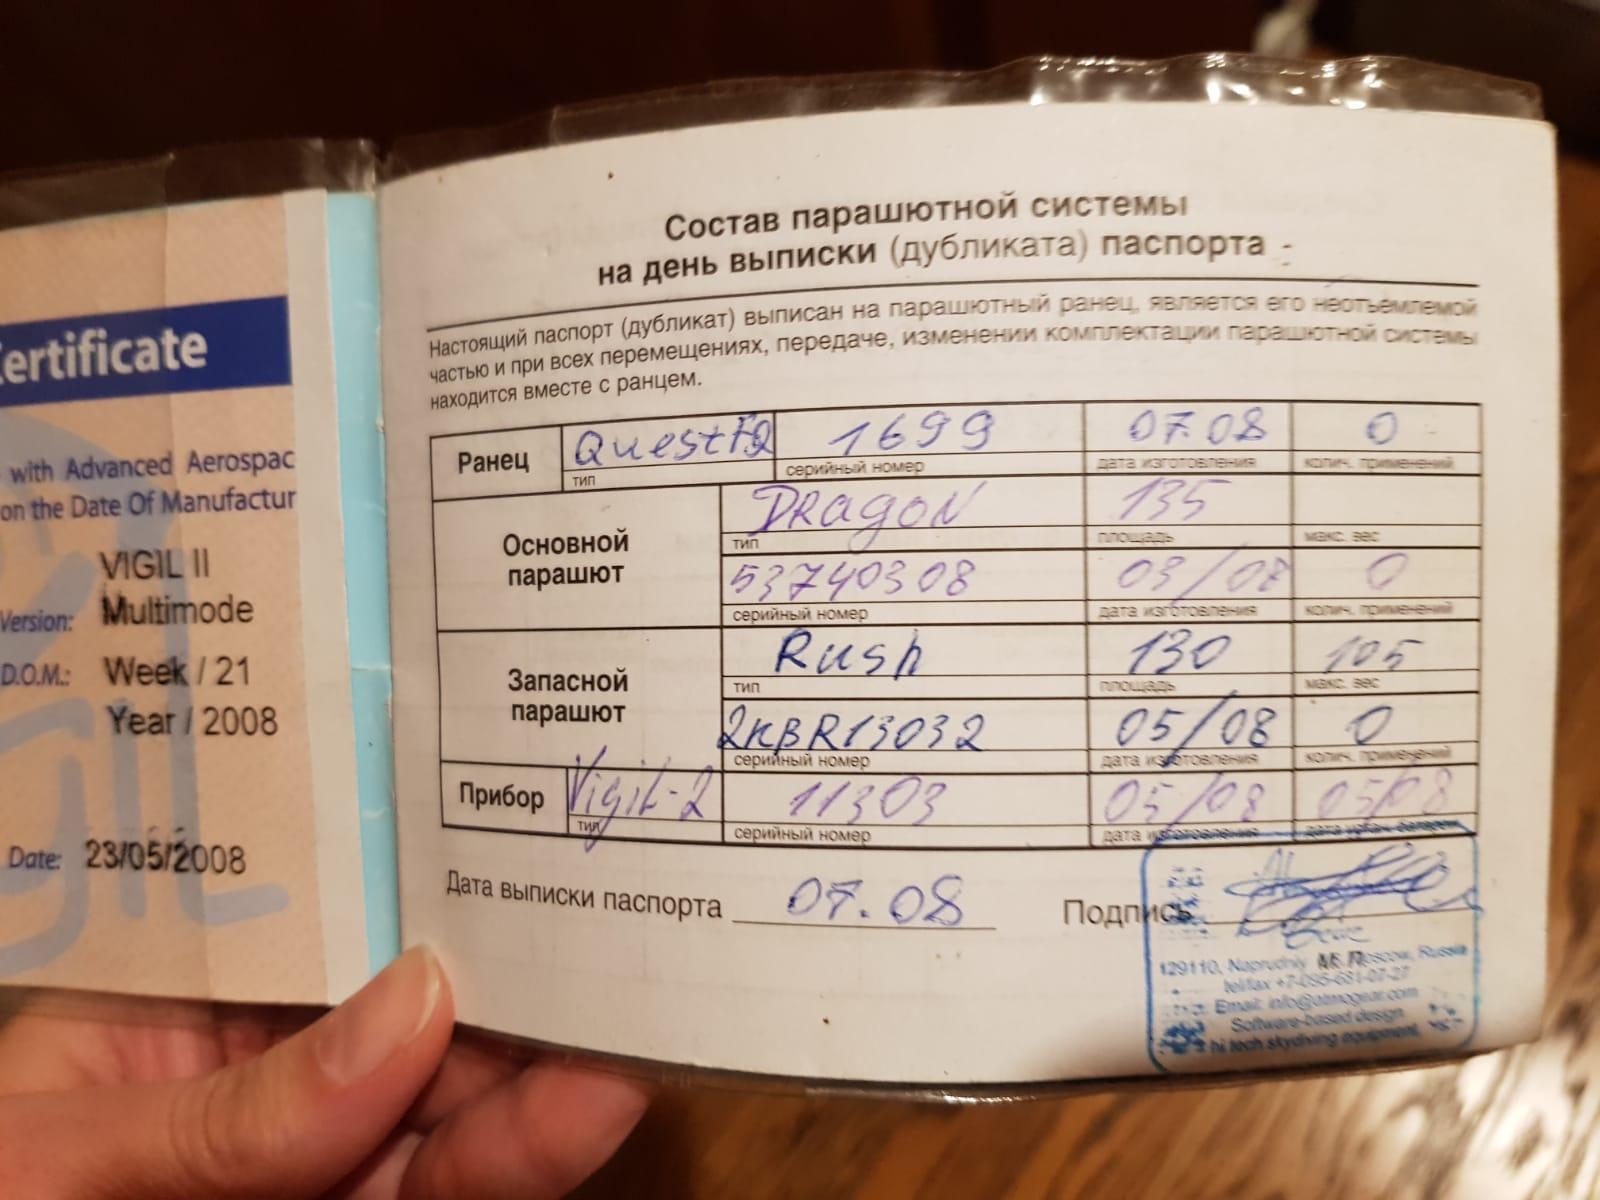 Certificate
with Advanced Aerospac
on the Date Of Manufactur
VIGIL II
Version: Multimode
D.O.M.: Week / 21
Year / 2008
Date: 23/05/2008
VIGIL
Состав парашютной системы
на день выписки (дубликата) паспорта
Настоящий паспорт (дубликат) выписан на парашютный ранец, является его неотъемлемой
частью и при всех перемещениях, передаче, изменении комплектации парашютной системы
находится вместе с ранцем.
Ранец Quest 1699 07.08 0
тип серийный номер дата изготовления колич. применений
Основной парашют
DRagoN 135
тип площадь макс. вес
53740308 03/08 0
серийный номер дата изготовления колич. применений
Запасной парашют
Rush 130 105
тип площадь макс. вес
2KBR13032 05/08 0
серийный номер дата изготовления колич. применений
Прибор Vigil-2 11303 05/08 05/08
тип серийный номер дата изготовления
Дата выписки паспорта 07.08 Подпись
129110, Naprudniy Moscow, Russia
tel/fax +7-095-681-07-27
Email: info@atmogear.com
Software-based design
hi tech skydiving equipment